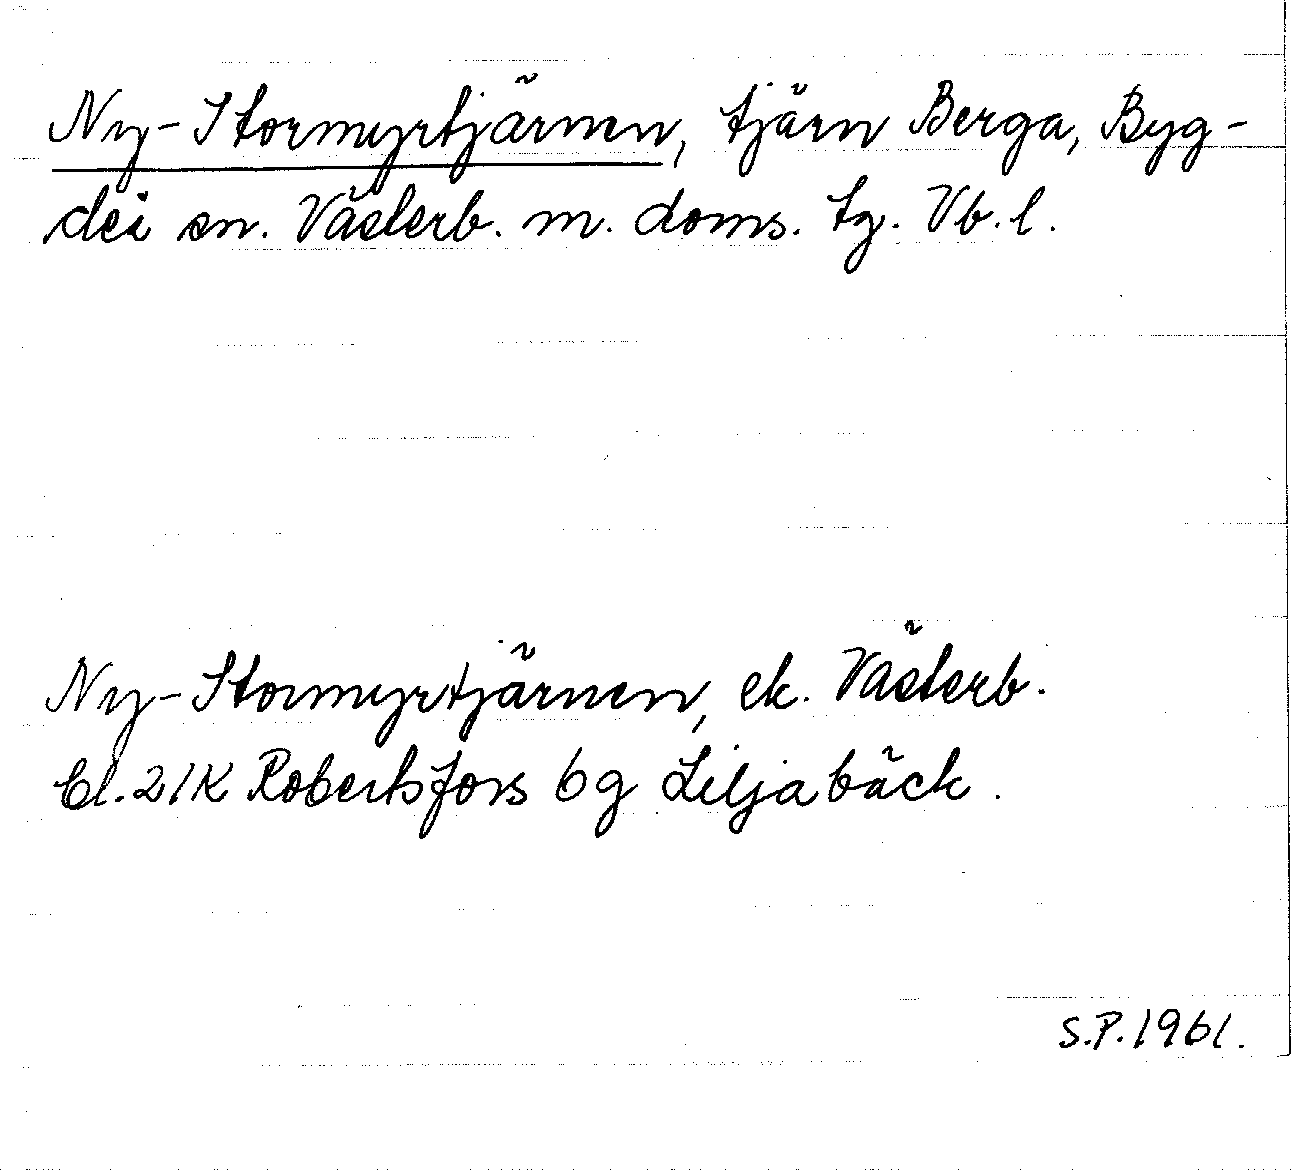 Ny-Stormyrtjärnen, tjärn Berga, Byg-
deå sn. Västerb. m. doms. tg. Vb. l.
Ny-Stormyrtjärnen, ek. Västerb.
bl. 21K Robertsfors 6g Liljabäck.
S.P. 1961.